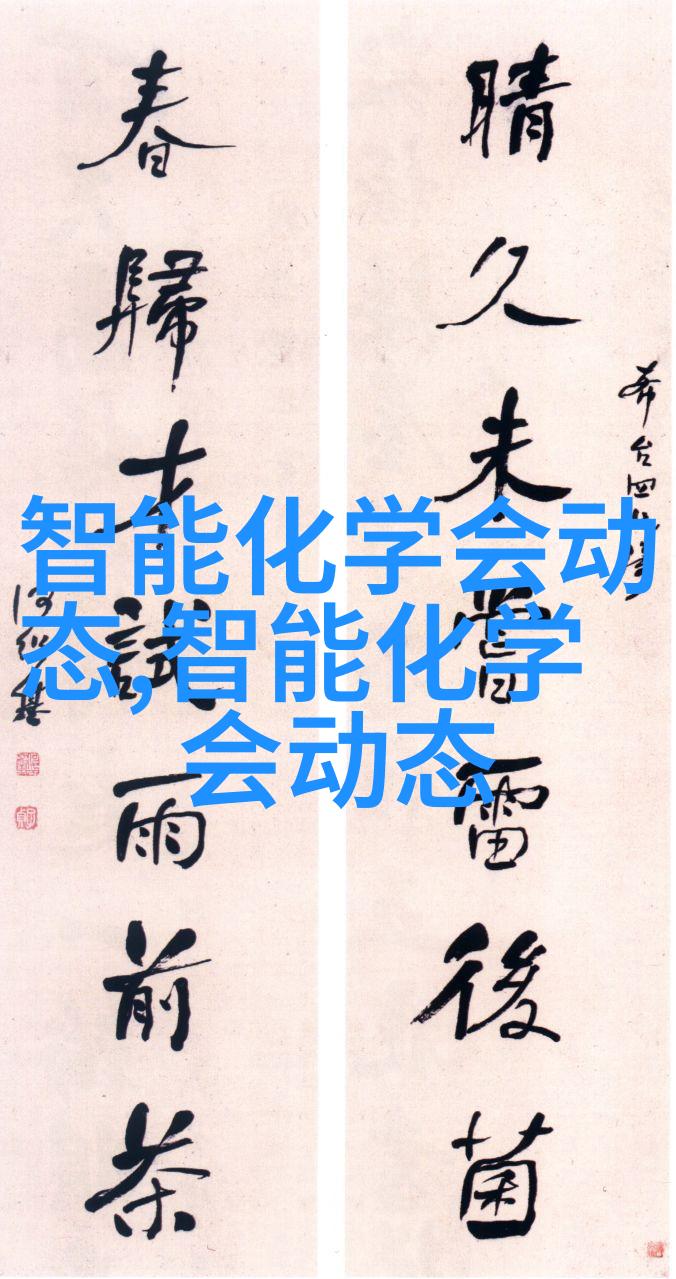 晴久未嘗雷後菌
春歸才試雨前茶
智能化学会动
态,智能化学
会动态